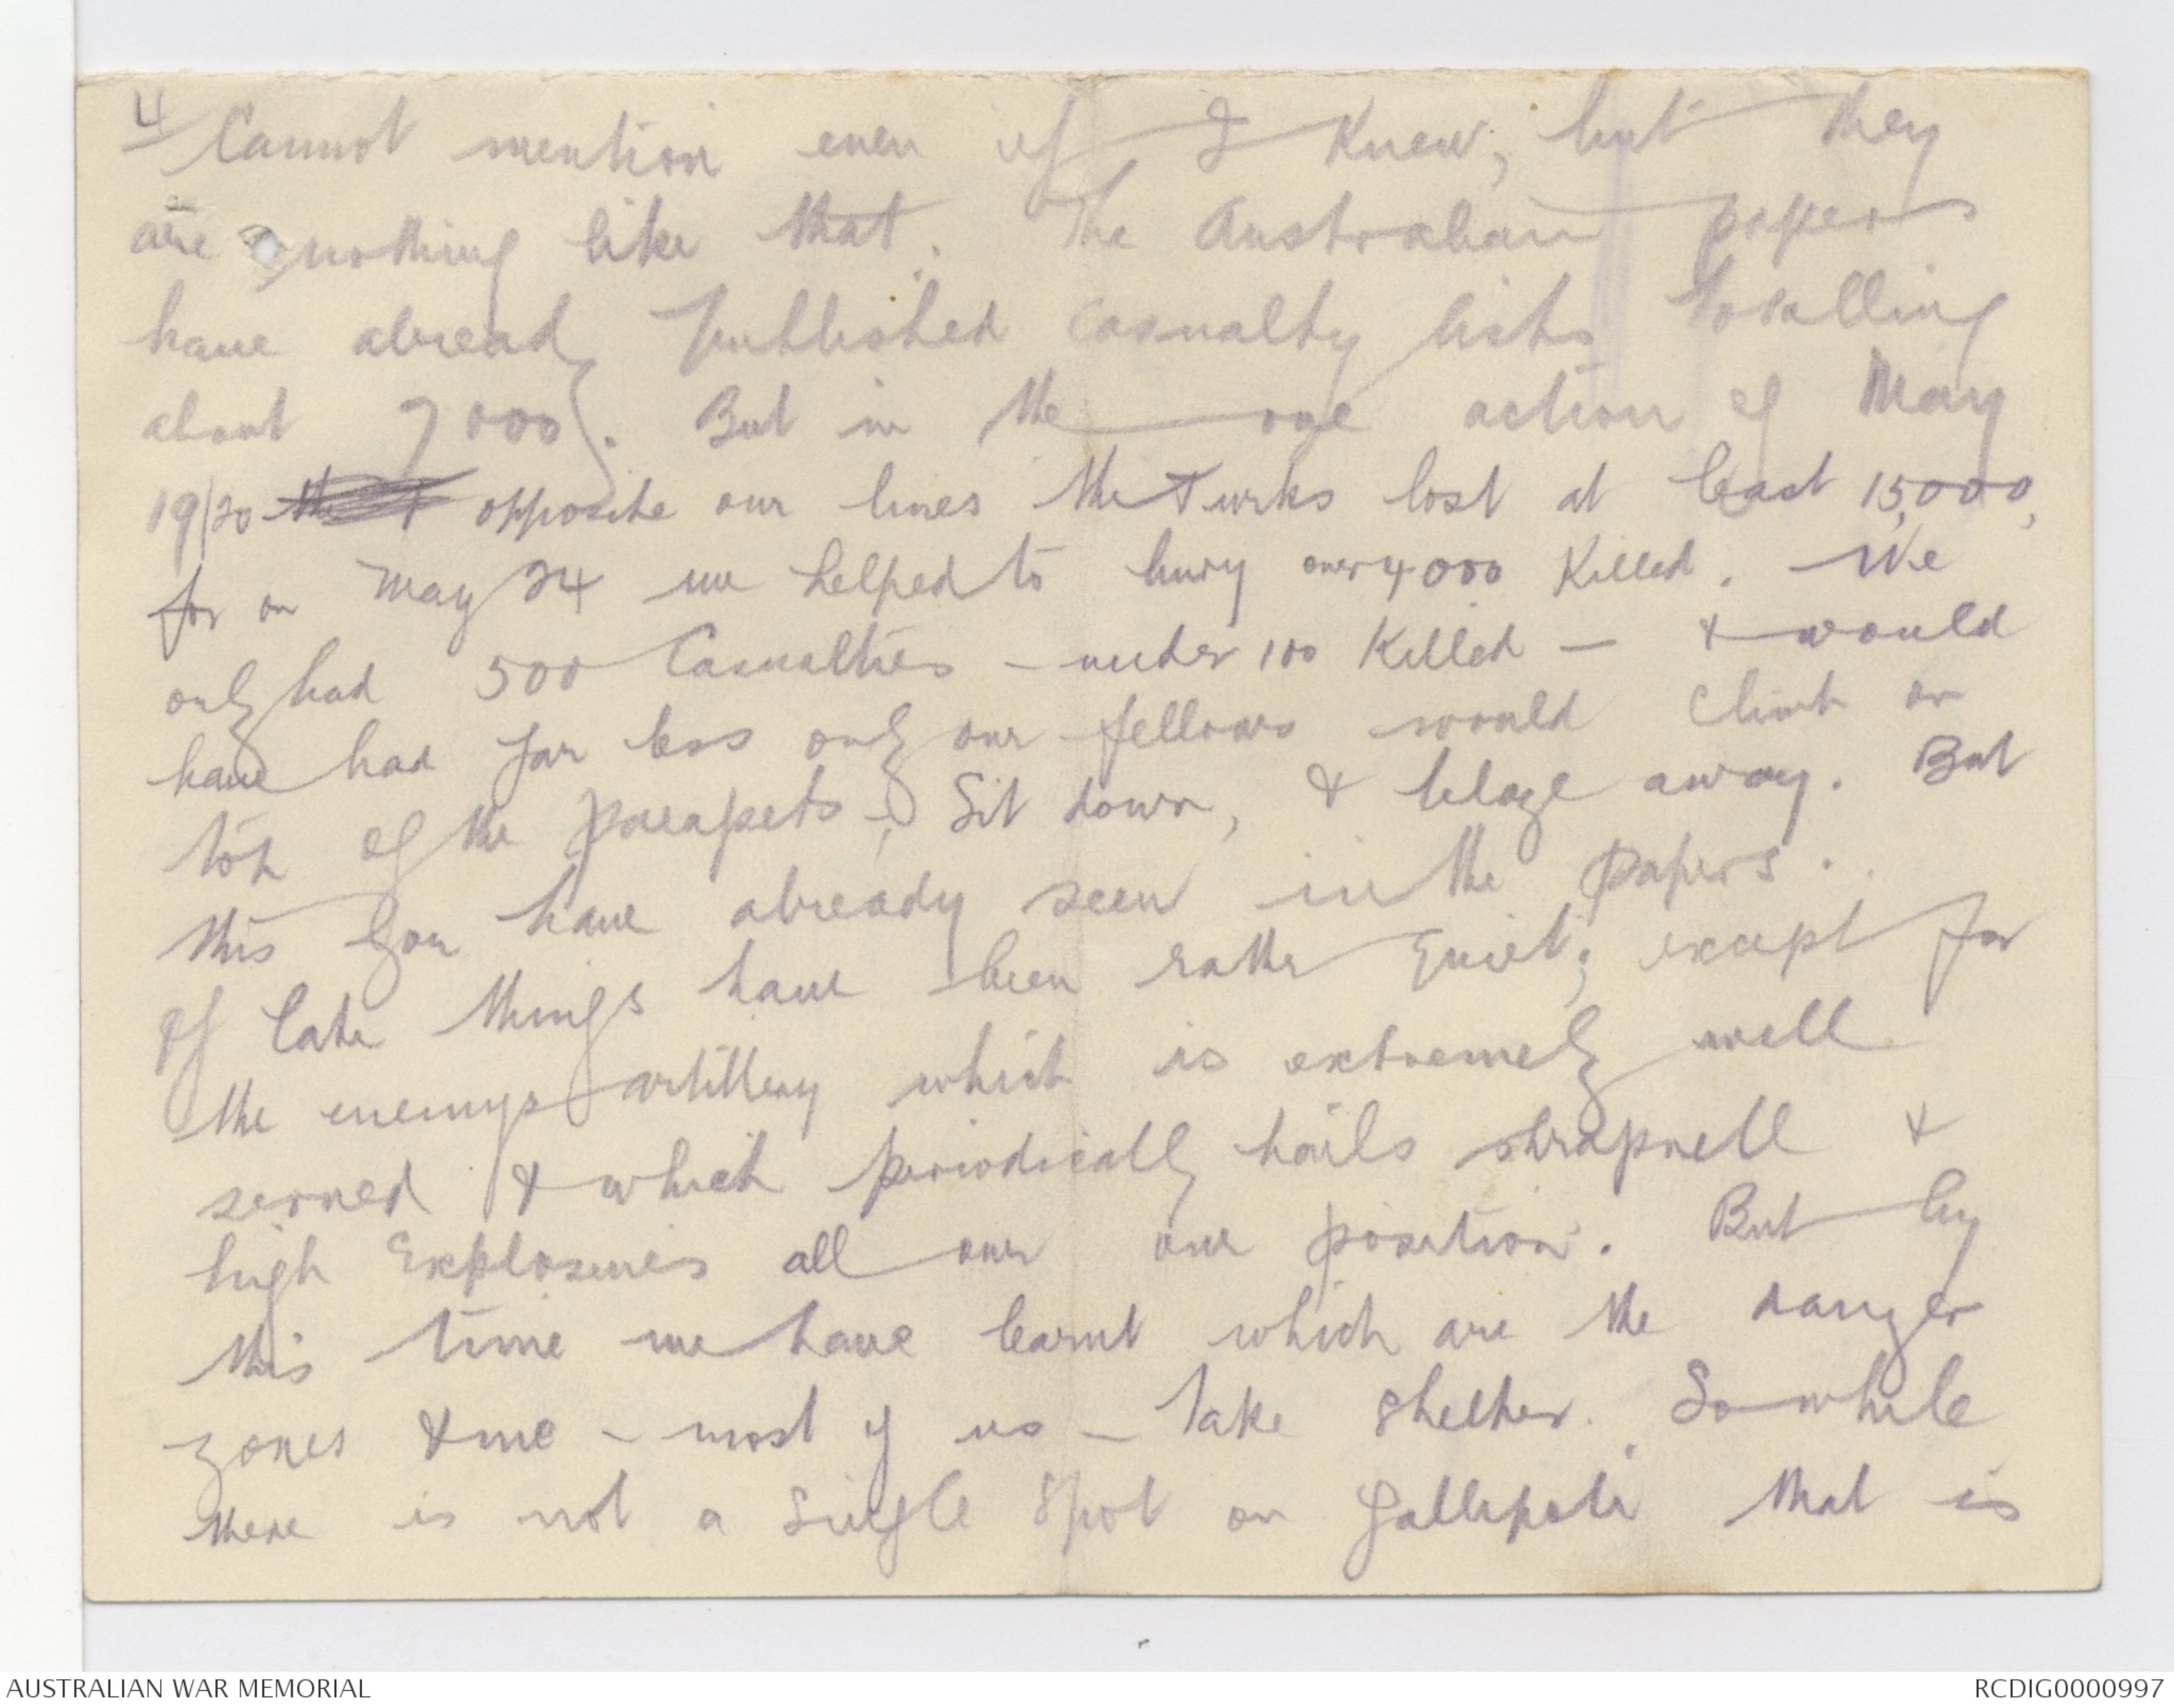 4/ Cannot mention even if I knew, but they
are nothing like that. The Australian papers
have already published casualty lists totalling
about 7000. But in the one action of May
19/20 opposite our lines the Turks lost at least 15,000,
for on May 24 we helped to bury over 4000 killed. We
only had 500 casualties - under 100 killed - & would
have had far less only our fellows would climb on
top of the parapets, sit down, & blaze away. But
this you have already seen in the papers.
Of late things have been rather quiet; except for
the enemys artillery which is extremely well
served & which periodically hails shrapnell &
high explosives all over our position. But by
this time we have learnt which are the danger
zones & we - most of us - take shelter. So while
there is not a single spot on Gallipoli that is
AUSTRALIAN WAR MEMORIAL
RCDIG0000997